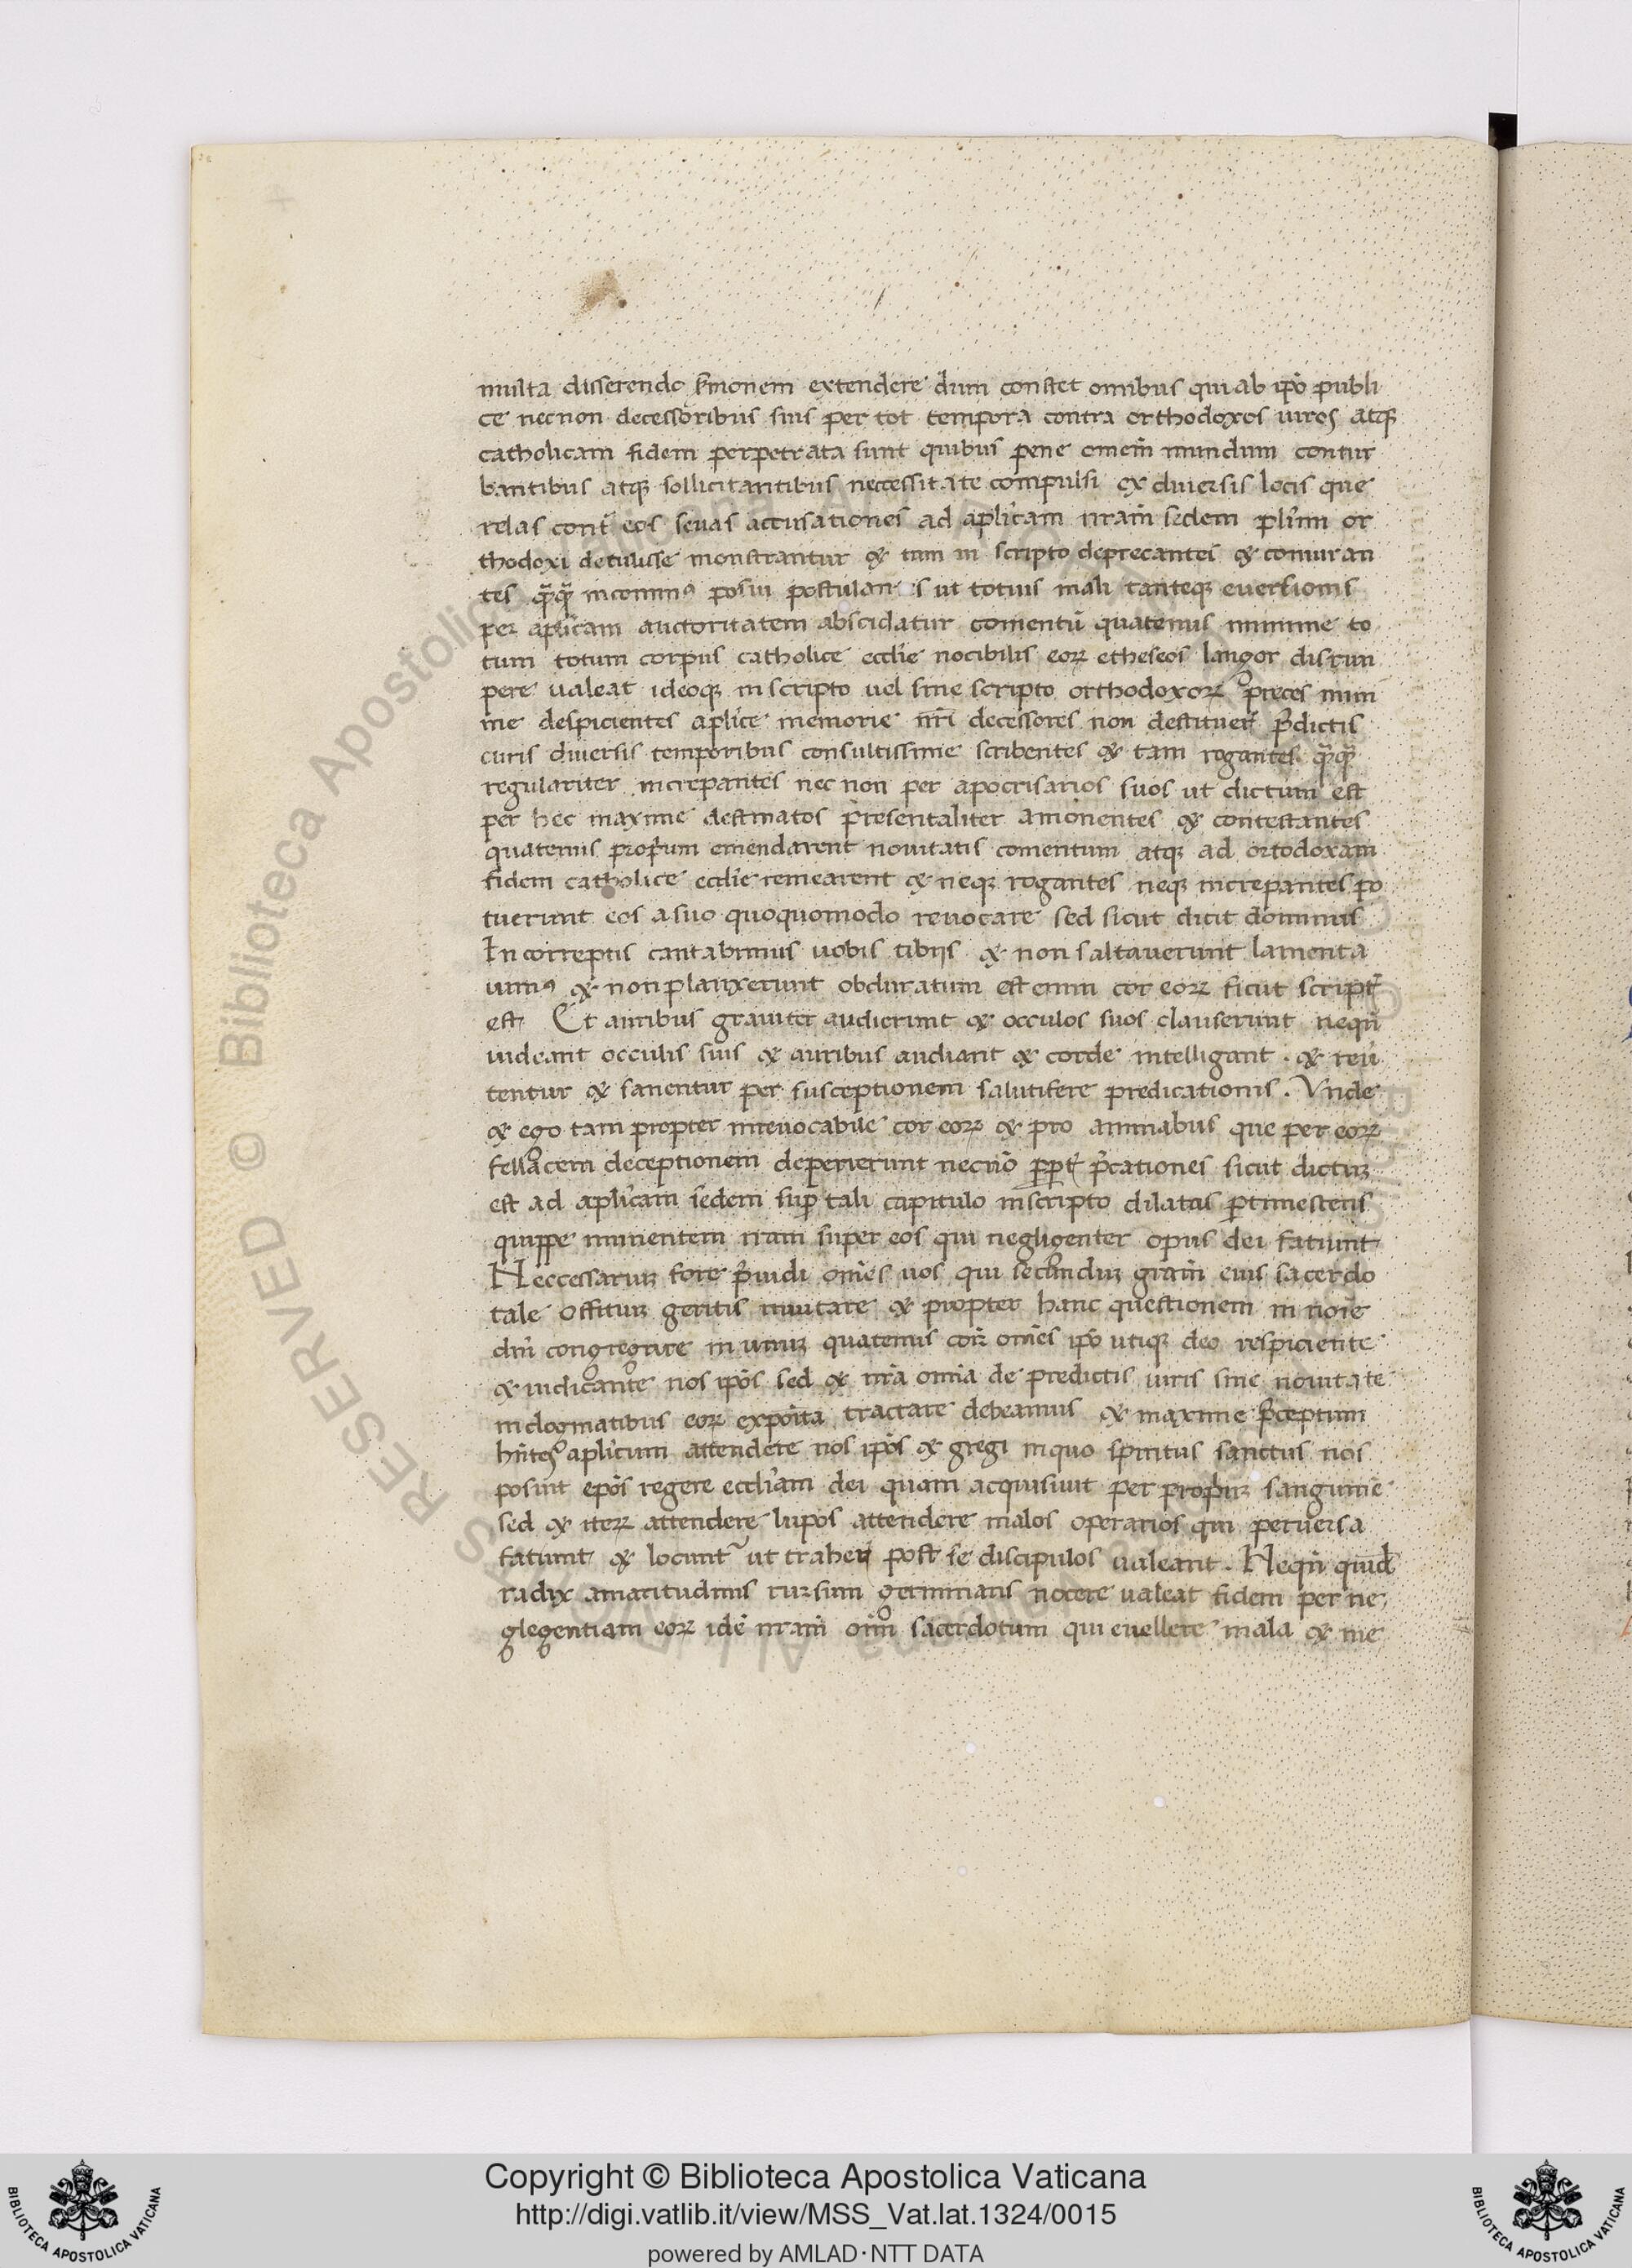 multa disserendo sermonem extendere dum constet omnibus qui ab ipo publi
ce necnon decessoribus suis per tot tempora contra orthodoxos uiros atqꝫ
catholicam fidem perpetrata sunt quibus pene omem mundum contur
bantibus atqꝫ sollicitantibus neccessitate compulsi ex diuersis locis que
relas cont eos seuas accusationes ad aplicam nram sedem plimi or
thodoxi detulisse monstrantur & tam in scripto deprecantes & coniuran
tes in ut totius mali tanteqꝫ euersionis
per aplicam auctoritatem abscidatur comentū quatenus minime to
tum totum corpus catholice ecclie nocibilis eoꝝ etheseos langor disrun
pere ualeat ideoqꝫ in scripto uel sine scripto orthodoxoꝝ preces mini
me despicientes aplice memorie nri decessores non destituer p̄dictis
curis diuersis temporibus consultissime scribentes & tam rogantes q̄q̄
regulariter increpantes nec non per apocrisarios suos ut dictum est
per hec maxime destinatos presentaliter amonentes & contestantes
quatenus proprium emendarent nouitatis comentum atqꝫ ad ortodoxam
fidem catholice ecclie remearent & neqꝫ rogantes neqꝫ increpantes po
tuerunt eos a suo quoquomodo reuocare sed sicut dicit dominus
In correptis cantabimus uobis tibijs & non saltauerunt lamenta
uimꝰ & non planxerunt obduratum est enim cor eoꝝ sicut script
est Et auribus grauiter audierunt & occulos suos clauserunt neqn̄
uideant occulis suis & auribus audiant & corde intelligant . & reū
tentur & sanentur per susceptionem salutifere predicationis . Vnde
& ego tam propter inreuocabile cor eoꝝ & pro animabus que per eoꝝ
fellacem deceptionem deperierunt necnō p̄cationes sicut dictuꝫ
est ad aplicam sedem sup tali capitulo inscripto dilatas ptimescens
quippe nram super eos qui negligenter opus dei fatiunt
Neccessariuꝫ fore p̄uidi omēs uos qui secunduꝫ gram eius sacerdo
tale offituꝫ geritis inuitare & propter hanc questionem in noīe
dnī congregare in unuꝫ quatenus omēs ipo utiqꝫ deo respiciente
& iudicante nos ipōs sed & nrā omīa de predictis uiris sine nouitate
in dogmatibus eoꝝ exposita tractare debeamus & maxime p̄ceptum
hn̄tes aplicum attendere nos ipōs & gregi in quo spiritus sanctus nos
posuit epōs regere eccliam dei quam acquisiuit per propriuꝫ sanguine
sed & iteꝝ attendere lupos attendere malos operarios qui peruersa
fatiunt & locunt ut traheri post se discipulos ualeant . Neqn̄ quidē
radix amaritudinis rursum germinans nocere ualeat fidem per ne
glegentiam eoꝝ idē nram oīm sacerdotum qui euellere mala & me
Copyright © Biblioteca Apostolica Vaticana
http://digi.vatlib.it/view/MSS_Vat.lat.1324/0015
powered by AMLAD·NTT DATA
BIBLIOTECA APOSTOLICA VATICANA
BIBLIOTECA APOSTOLICA VATICANA